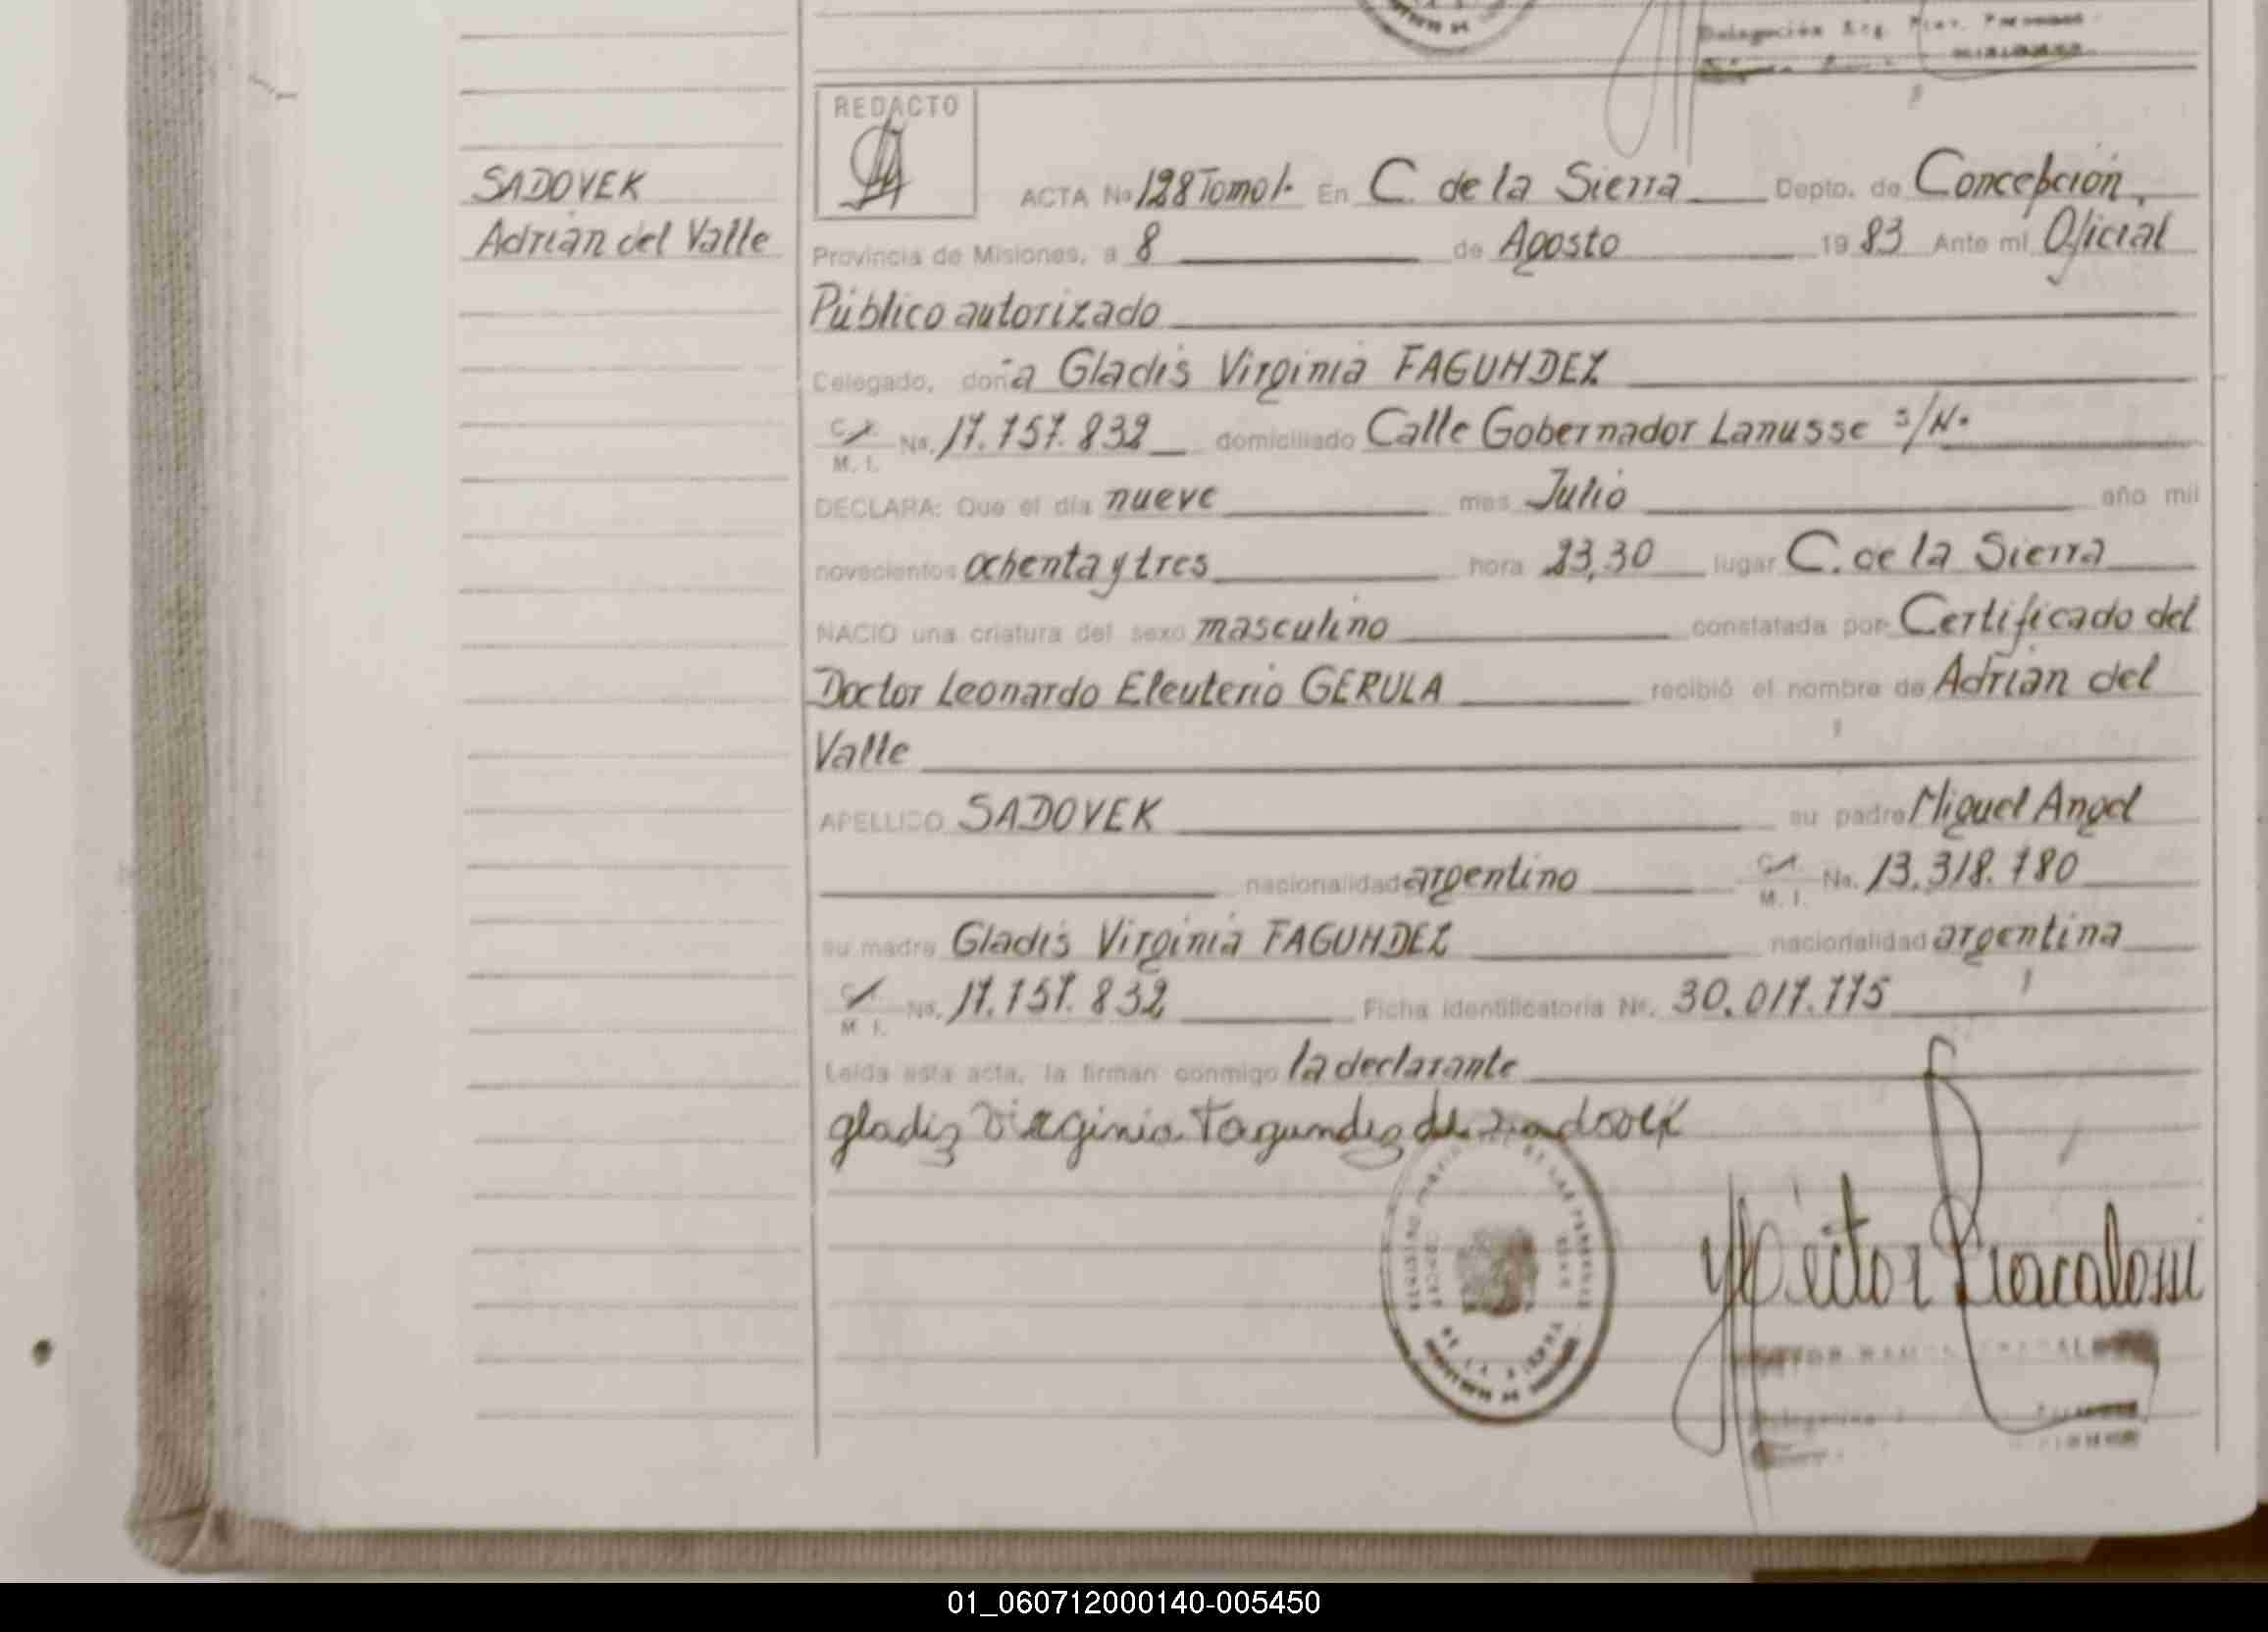 Delegación Reg. Prov.
REDACTO
SADOVEK
Adrián del Valle
ACTA No 128 Tomo I. En C. de la Sierra Depto. de Concepción,
Provincia de Misiones, a 8 de Agosto 19 83 Ante mí Oficial
Público autorizado
Delegado, doña Gladis Virginia FAGUNDEZ
C.I.
M. I. No. 17.157.832 domiciliado Calle Gobernador Lanusse s/N.
DECLARA: Que el día nueve mes Julio año mil
novecientos ochenta y tres hora 23,30 lugar C. de la Sierra
NACIO una criatura del sexo masculino constatada por Certificado del
Doctor Leonardo Eleuterio GERULA recibió el nombre de Adrián del
Valle
APELLIDO SADOVEK su padre Miguel Angel
nacionalidad argentino C.I.
M. I. No. 13.318.780
su madre Gladis Virginia FAGUNDEZ nacionalidad argentina
C.I.
M. I. No. 17.157.832 Ficha identificatoria No. 30.017.775
Leída esta acta, la firman conmigo la declarante
gladiz Virginia Fagundez de
Héctor
DE LA SIERRA
01_060712000140-005450